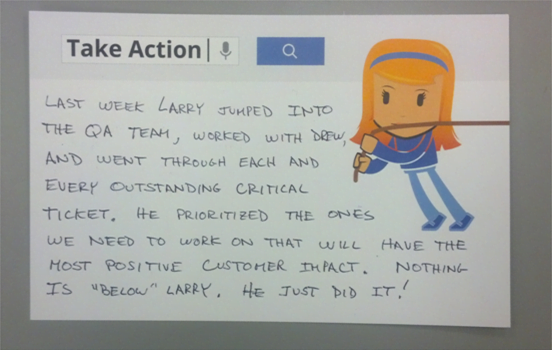 Take Action
LAST WEEK LARRY JUMPED INTO
THE QA TEAM, WORKED WITH DREW,
AND WENT THROUGH EACH AND
EVERY OUTSTANDING CRITICAL
TICKET. HE PRIORITIZED THE ONES
WE NEED TO WORK ON THAT WILL HAVE THE
MOST POSITIVE CUSTOMER IMPACT. NOTHING
IS "BELOW" LARRY. HE JUST DID IT!